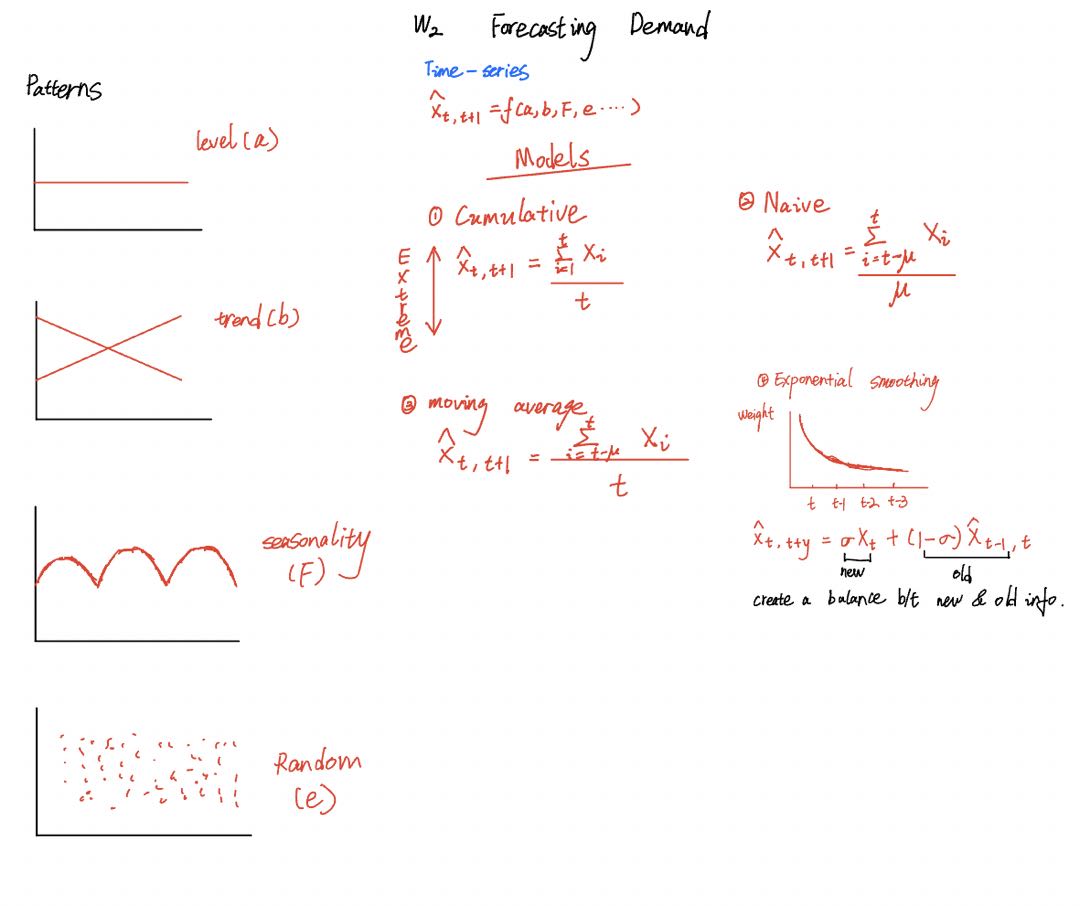 W₂ Forecasting Demand
Patterns
level (a)
trend (b)
seasonality
(F)
Random
(e)
Time-series
x̂ₜ,ₜ₊₁ = f(a, b, F, e ····)
Models
① Cumulative
Extreme
x̂ₜ,ₜ₊₁ = Σᵢ₌₁ᵗ Xᵢ / t
② Naive
x̂ₜ,ₜ₊₁ = Σ_{i=t-μ}^{t} Xᵢ / μ
③ moving average
x̂ₜ,ₜ₊₁ = Σ_{i=t-μ}^{t} Xᵢ / t
Exponential smoothing
weight
t t-1 t-2 t-3
x̂ₜ,ₜ₊y = σXₜ + (1-σ) x̂ₜ₋₁,ₜ
new old
create a balance b/t new & old info.